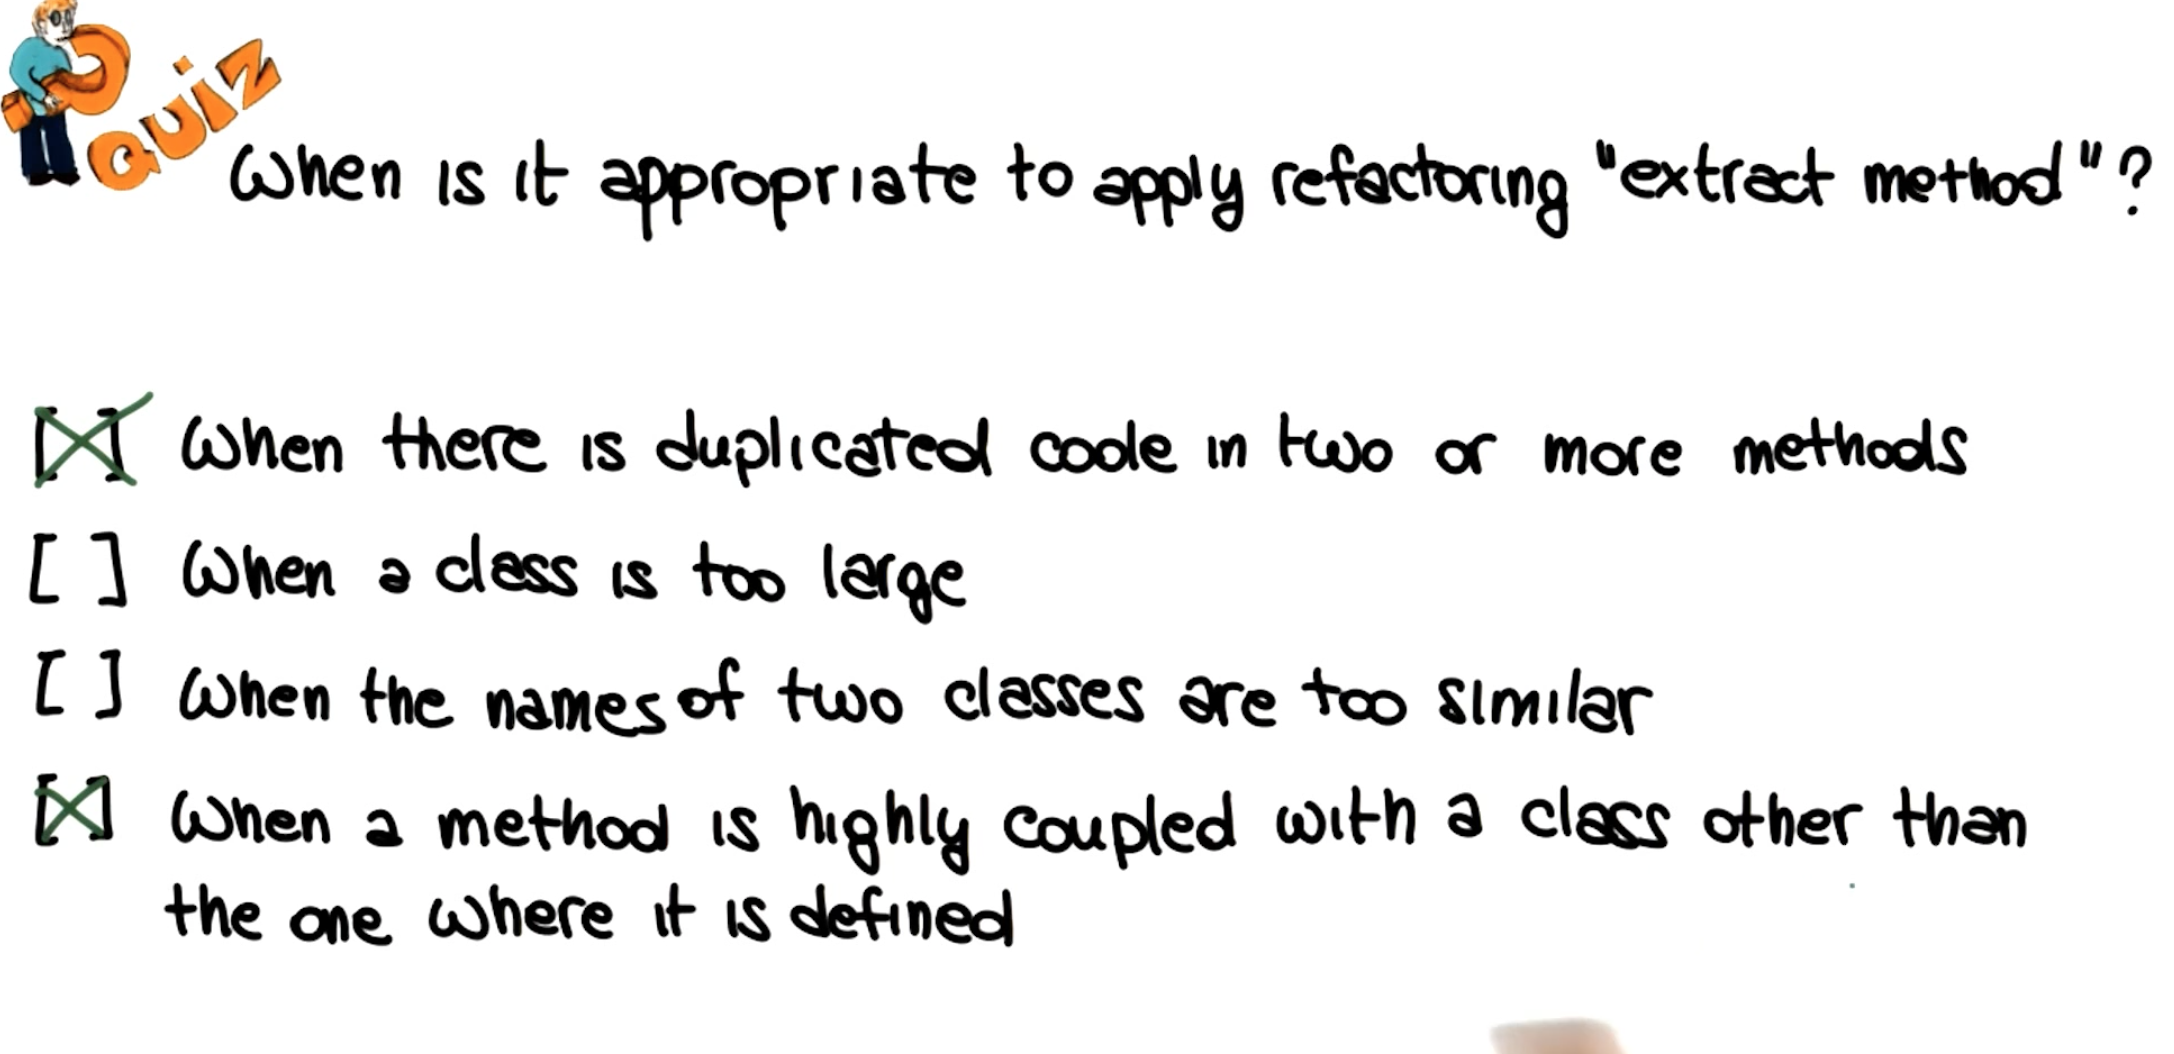 QUIZ
When is it appropriate to apply refactoring "extract method"?
[X] When there is duplicated code in two or more methods
[ ] When a class is too large
[ ] When the names of two classes are too similar
[X] When a method is highly coupled with a class other than
the one where it is defined